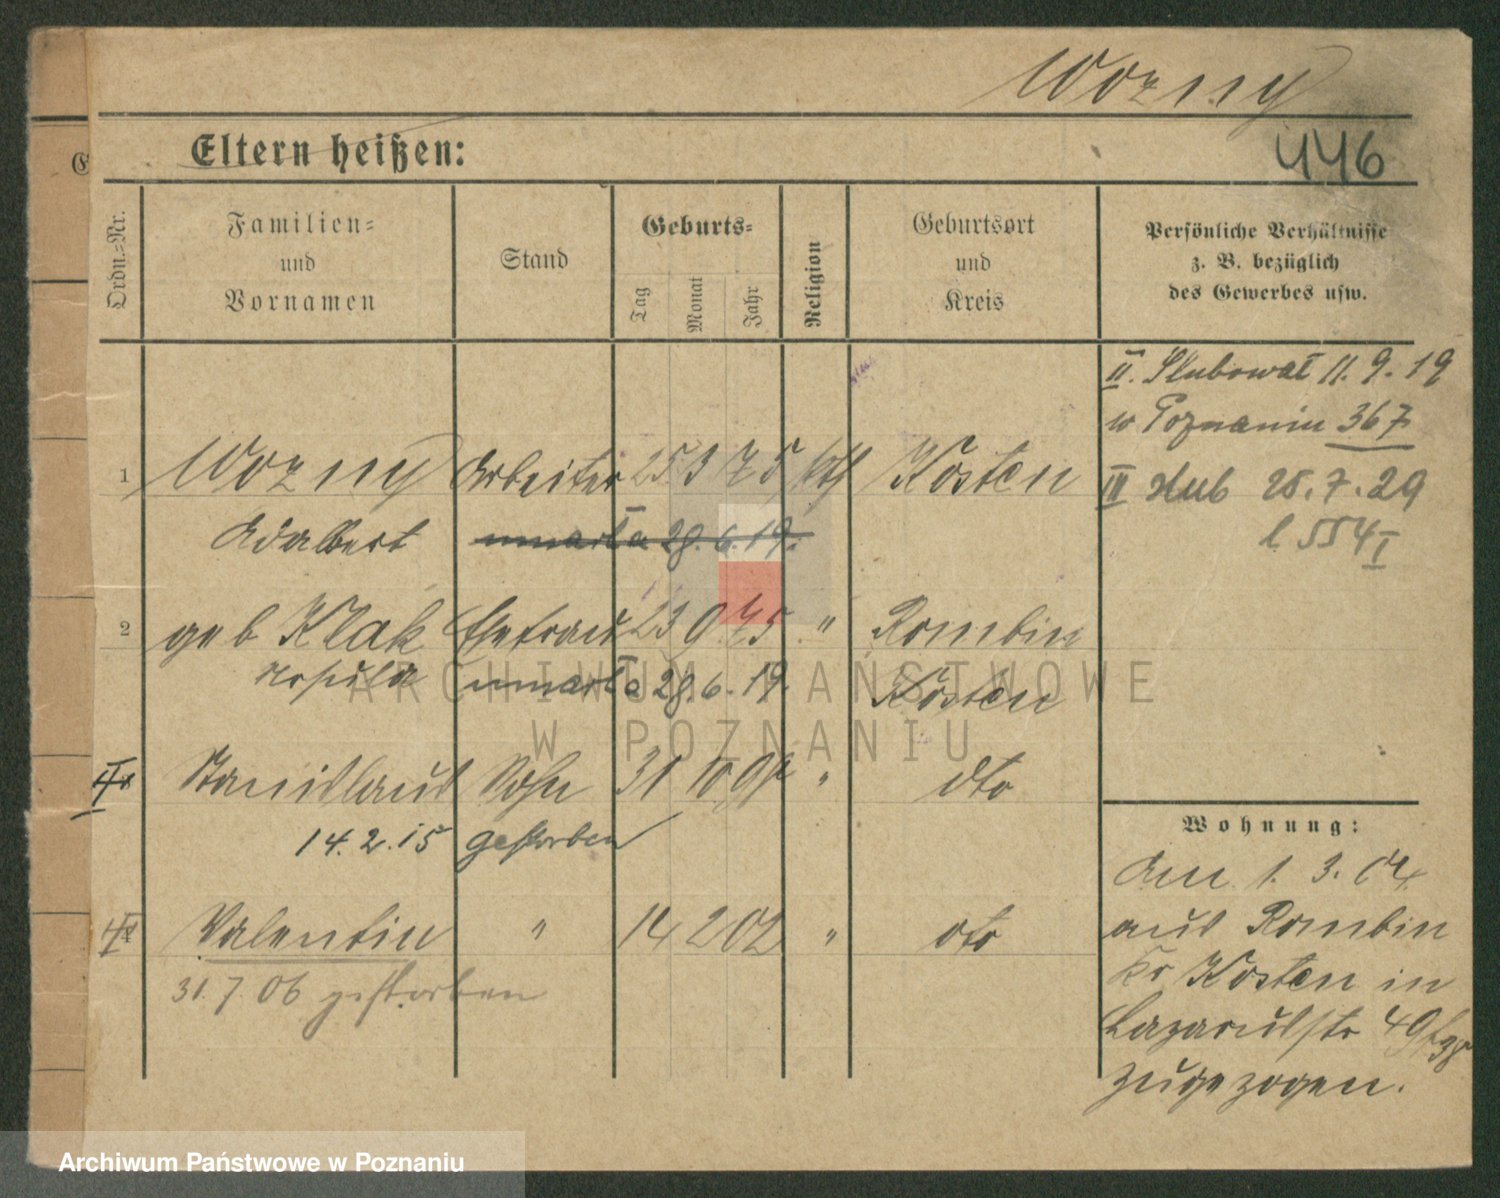 Wozny
446
Eltern heißen:
Ordn.=Nr.
Familien=
und
Vornamen
Stand
Geburts=
Tag
Monat
Jahr
Religion
Geburtsort
und
Kreis
Persönliche Verhältnisse
z. B. bezüglich
des Gewerbes usw.
II. Slubował 11.9.19
w Poznaniu 367
III slub 25.7.29
l 554 I
1 Wozny Arbeiter 25 3 75 kth Kosten
Adalbert umarła 28.6.19.
2 geb Klak Ehefrau 23 9 75 " Rombin
umarła 28.6.19. Kosten
Stanislaus Sohn 31 10 " dto
14.2.15 gestorben
Valentin " 14 2 02 " dto
31.7.06 gestorben
Wohnung:
Am 1. 3. 04
aus Rombin
Kr Kosten in
Lazarusstr 49
zugezogen.
ARCHIWUM PAŃSTWOWE
W POZNANIU
Archiwum Państwowe w Poznaniu